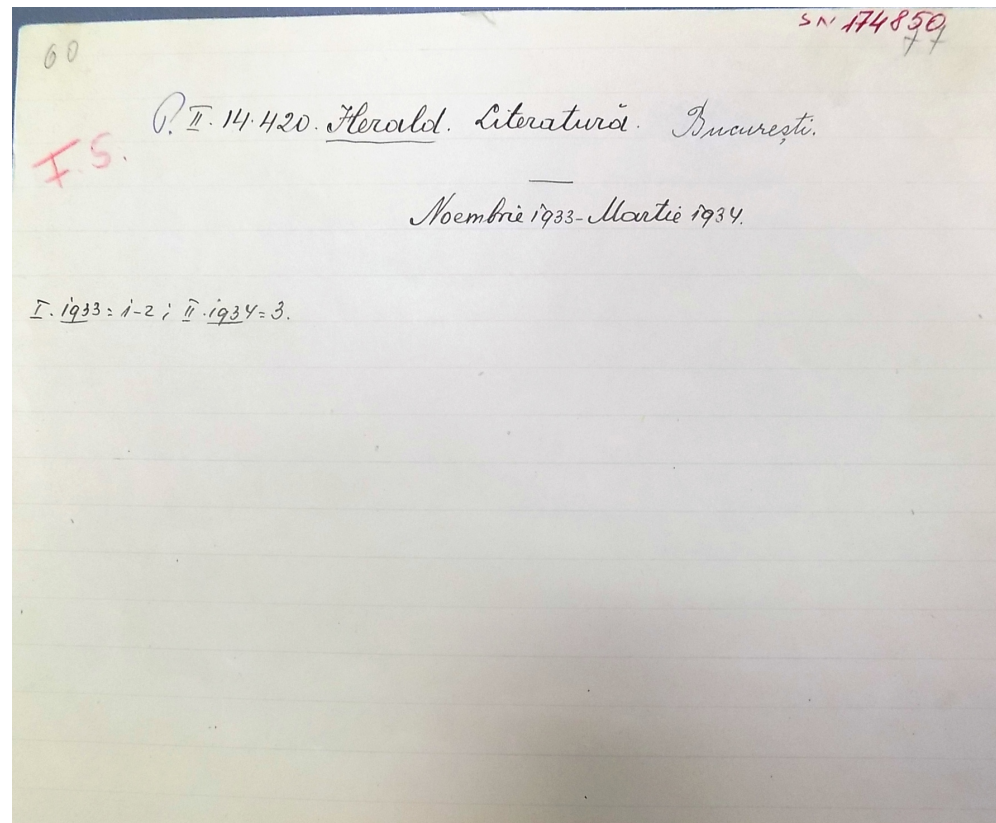 60
SN 174850
77
P. II. 14.420. Herald. Literatură. București.
F.S.
Noembrie 1933 - Martie 1934.
I. 1933 = 1-2 ; II. 1934 = 3.